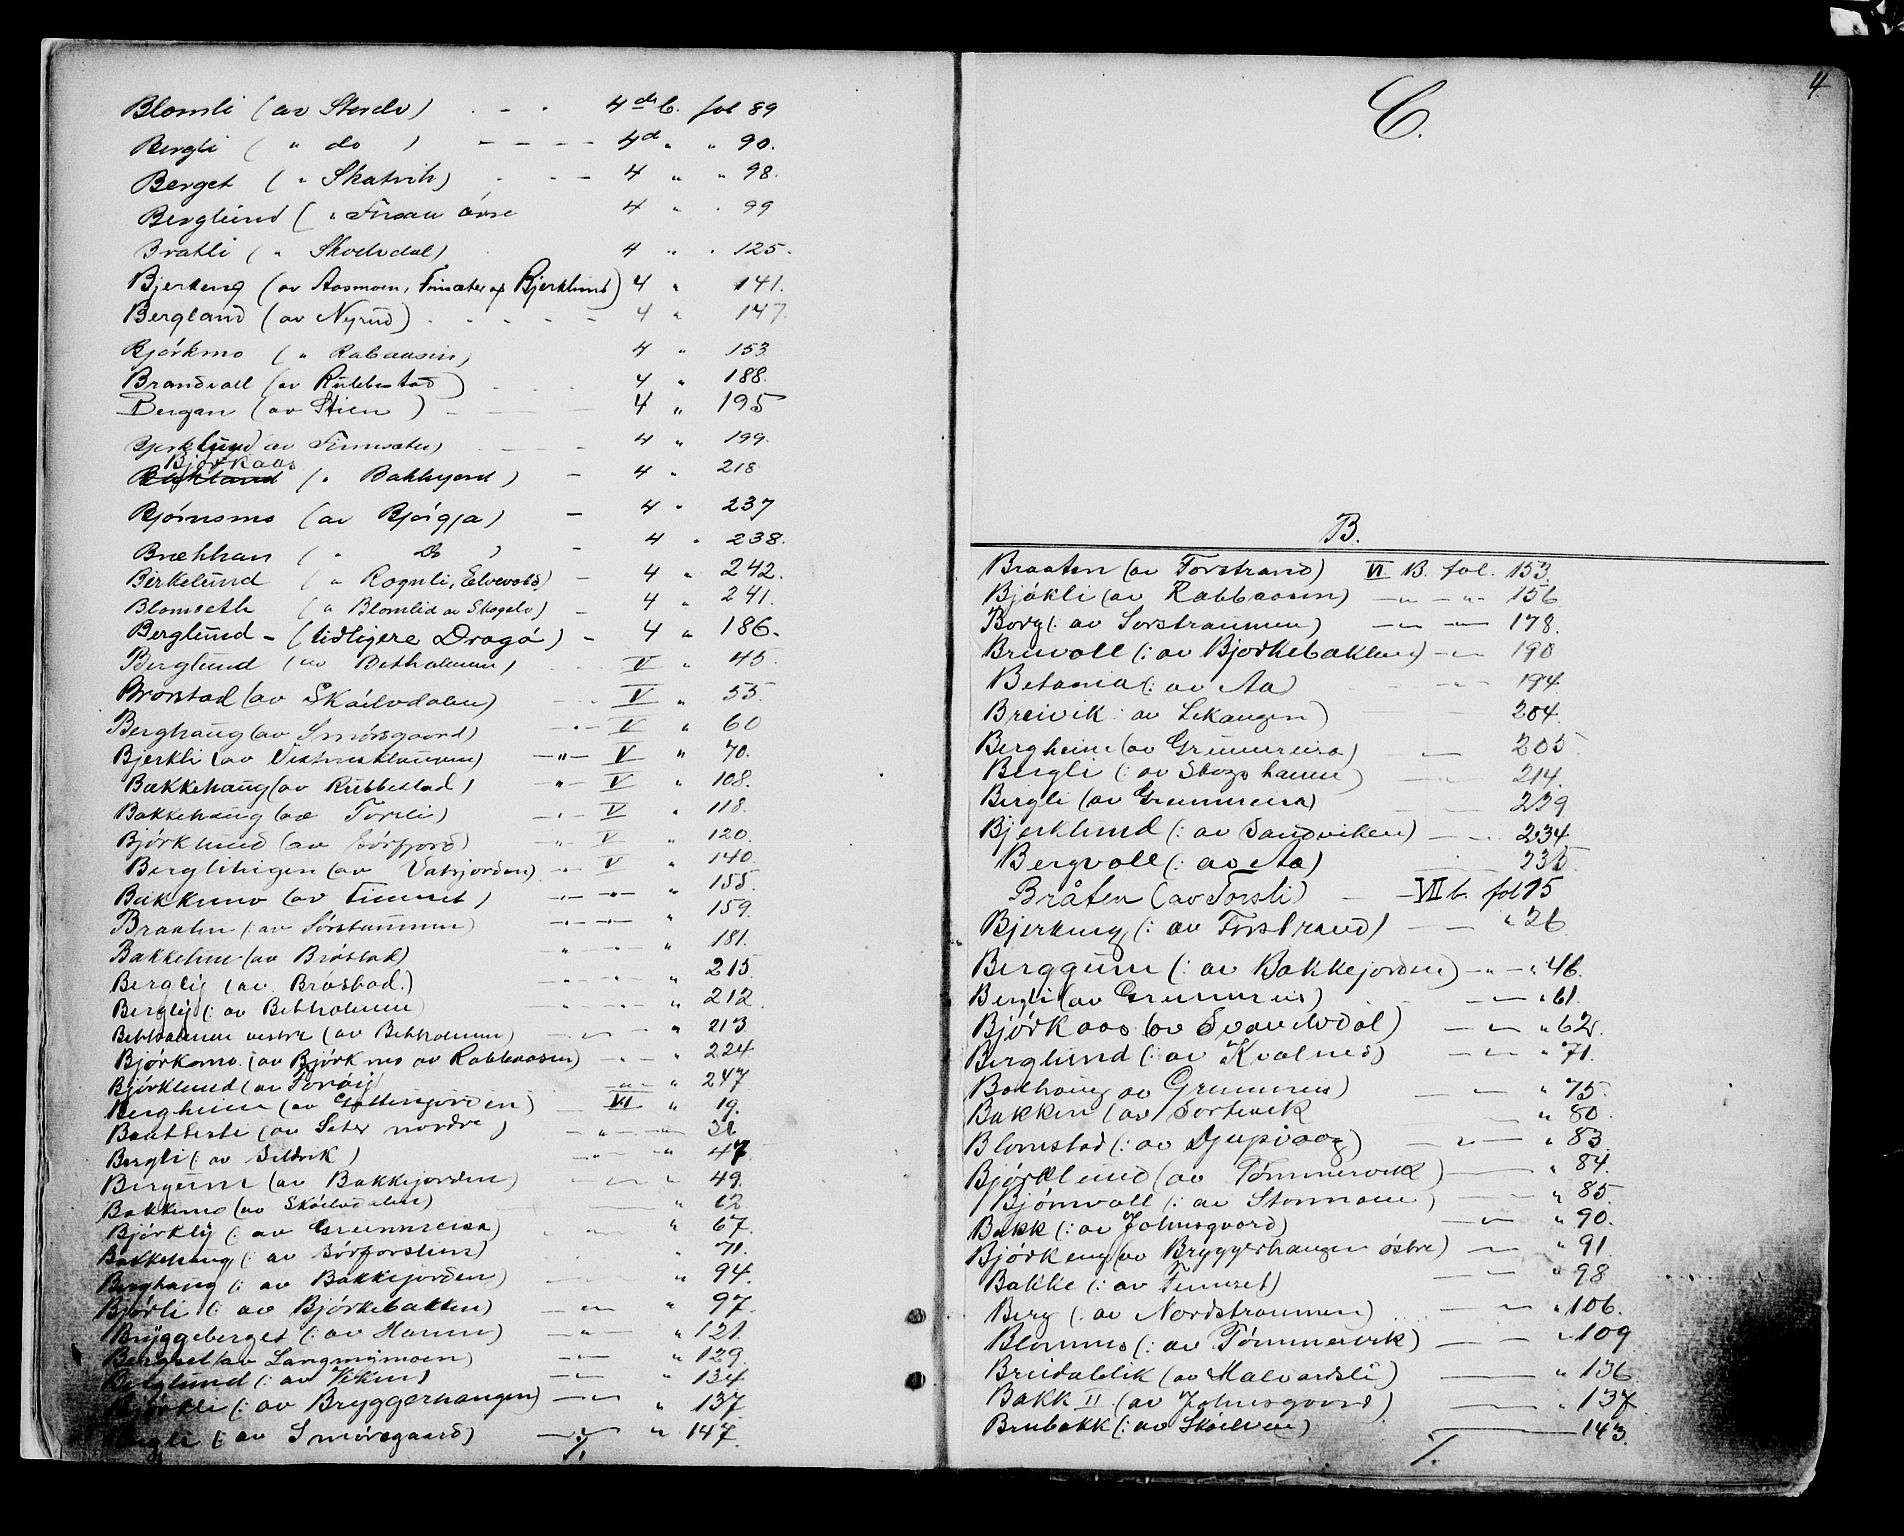 Blomli (av Stordv) . - . 4de b. fol 89
Bergli ( " do ) - - - - 4d " " 90.
Berget ( " Skatvik) . - - 4 " " 98.
Berglund ( " Finsæt övre 4 " . 99
Bratli ( " Skodvdal) 4 " . 125.
Bjerkeng (av Aasmoen, Finsæter og Bjerklund) 4 " 141.
Bergland (av Nyrud) . - - - - 4 " 147.
Björkmo ( " Rabaasen) 4 " 153
Brandvoll (av Rubbestad) . . . 4 " 188.
Bergan (av Stien ) - — — 4 " 195
Bjerklund av Finsæter) - - - 4 " 199.
Björkaas
( " Bakkejord ) - 4 " 218
Björnsmo (av Björgja) - 4 " 237
Brækkan ( " Do ) - 4 " 238.
Birkelund ( " Rognli, Elvevold) - 4 " 242.
Blomseth ( " Blomlid av Skogelv) - 4 " 241.
Berglund - (tidligere Dragö) - 4 " 186.
Berglund (av Betholmen) . . V " 45.
Brorstad (av Sköelvdalen) . . V " 55.
Berghaug (av Smörsgaard) . - V " 60
Bjerkli (av Vestnestaumen) — " — V " 70.
Bakkehaug (av Rubbestad) " - V " 108.
Bakkehaug (av Forsli) — . — V " 118.
Björklund (av Sörfjord) " - V " 120.
Berglitrigen (av Vatsjorden) - " - V " 140.
Bakkemo (av Finset) — " — " — " 155.
Braaten (: av Sörstraumen) — " — " — " 159.
Bakkelun (av Bröstad) " - " - " 181.
Berglij (av Bröstad.) " - " - " 215.
Berglij (: av Betholmen . - " - " 212.
Betholmen vestre (av Betholmen) — " — " 213.
Björkmo (av Björkmo av Rabbaasen) — " — " 224.
Björklund (av Finöij) — " — " 247.
Bergheim (av Gottesjorden) VI " 19.
Baatleite (av Seter nordre) — " — " — 32
Bergli (: av Sildvik) " - " - 47
Bergum (av Bakkejorden) " - " 49.
Bakkemo (av Sköelvdalen) " 62
Björklij (: av Grunnreisa) " 67.
Bakkehaug (: av Sörforslien) " 71.
Berghaug (: av Bakkejorden) " 94.
Björli (: av Björkebakken) — " — " 97.
Bryggeberget (: av Hamn) — " — " 121.
Bergset (av Langmimoen) — " — " 129.
Berglund (: av Viken) — " — " 134
Björkli (: av Bryggerhaugen) — " — " 137
Bergli (: av Smörsgaard) — " — " 147.
./.
4
C.
B.
Braaten (av Forstrand) VI B. fol. 153.
Bjökli (av Rabbaasen) — " — " 156
Borg (: av Sorstraumen) — " — " 178.
Breivoll (: av Bjorkebakken) — " — 190
Betania (: av Aa) " - 194.
Breivik : av Lekangen) 204.
Bergheim (av Grunnreisa) — 205
Bergli (: av Skogshamn) 214.
Bergli (av Grunnreisa) 229
Bjerklund (: av Sandviken) — . 234
Bergvoll (: av Aa) 235
Bråten (av Forsli) — VII b. fol 15
Bjerkeng (: av Forstrand) — " 26
Berggum (: av Bakkejorden) — " — " 46.
Bergli (av Grunnreis) — " 61.
Björkaas (av Svanelvdal) — " — " 62.
Berglund (: av Kvalnes) — " — " 71.
Bakhaug av Grunnreis) — — " 75.
Bakken (av Sortevik — " 80.
Blomstad (: av Djupvaag) — " — " 83
Björklund (av Tömmervik) — " 84.
Björnvoll (: av Stormoen) — " 85.
Bakk (: av Johnsgaard) — " — " 90.
Björkeng (av Bryggerhaugen östre) — " — " 91
Bakke (: av Finnset) — — " 98
Berg (: av Nordstraumen) — " — " 106.
Blommo (: av Tömmervik) — — " 109
Breidablik (av Halvardsli) — — " 136
Bakk II (av Johnsgaard) — " 137
Brubakk (: av Sköelven) — 143.
./.